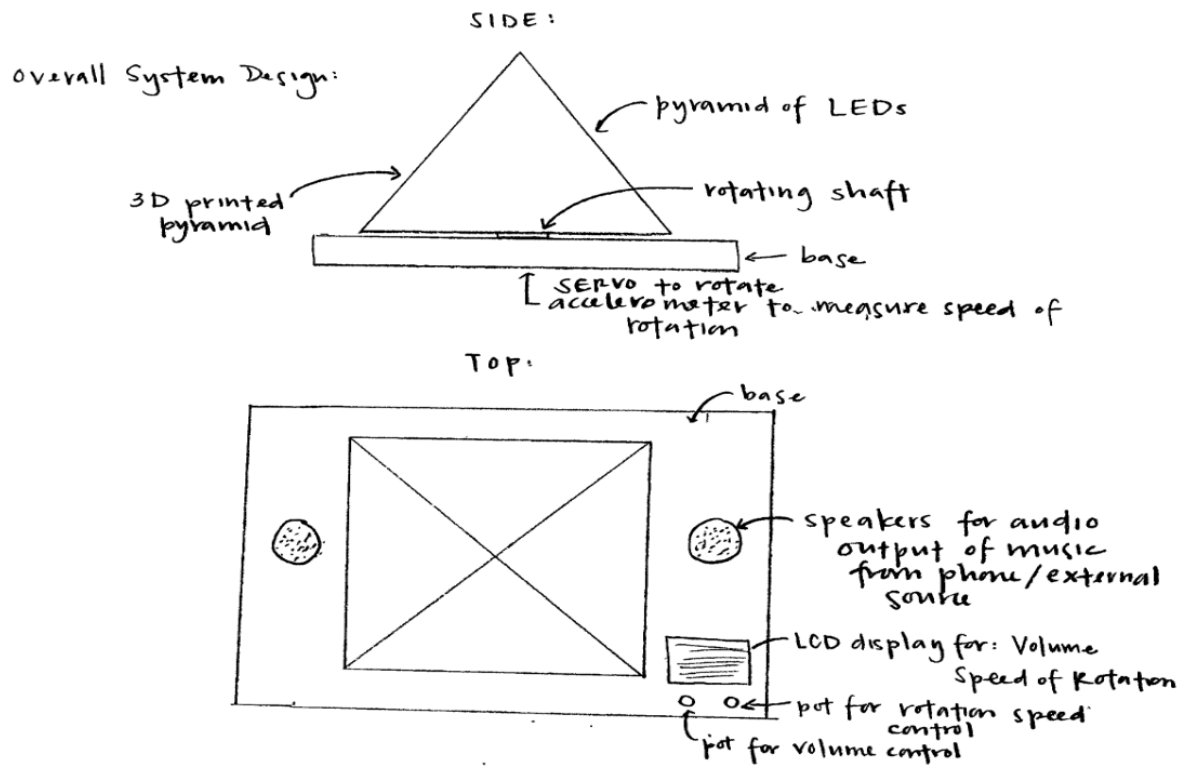 SIDE:
Overall System Design:
pyramid of LEDs
3D printed
pyramid
rotating shaft
base
SERVO to rotate
accelerometer to measure speed of
rotation
TOP:
base
speakers for audio
output of music
from phone/external
source
LCD display for: Volume
Speed of Rotation
pot for rotation speed
control
pot for volume control